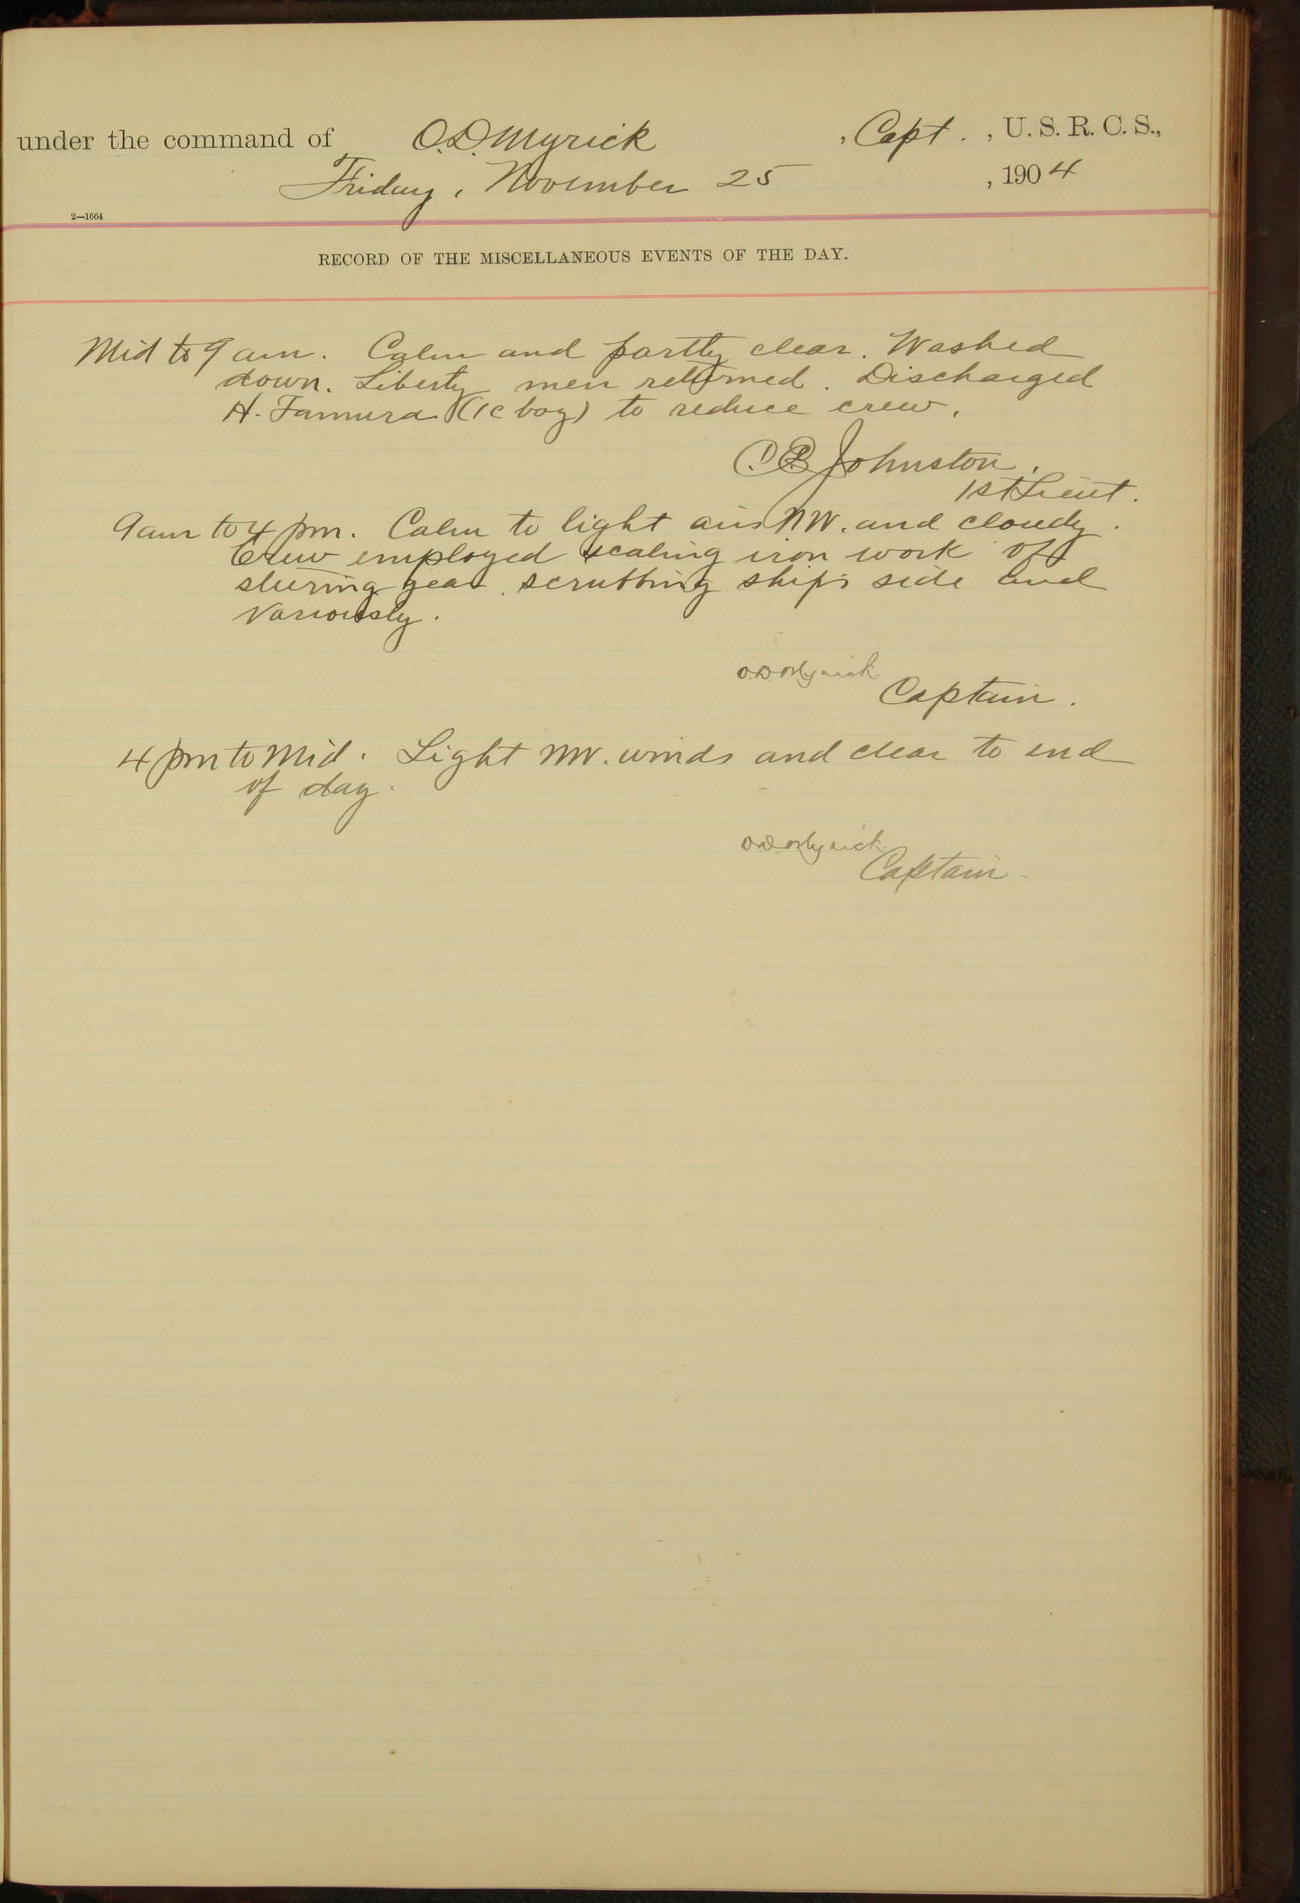 under the command of O.D. Myrick, Capt., U. S. R. C. S.,
Friday, November 25, 1904
2—1664
RECORD OF THE MISCELLANEOUS EVENTS OF THE DAY.
Mid to 9 am. Calm and partly clear. Washed
down. Liberty men returned. Discharged
H. Famura (1c boy) to reduce crew.
Johnston.
1st Lieut.
9 am to 4 pm. Calm to light airs NW. and cloudy.
Crew employed scaling iron work of
steering gear, scrubbing ship's side and
variously.
O.D. Myrick
Captain.
4 pm to Mid. Light NW. winds and clear to end
of day.
O.D. Myrick
Captain.